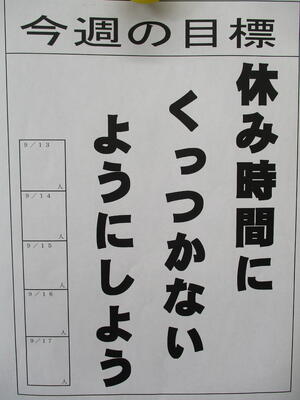 今週の目標
休み時間に
くっつかない
ようにしよう
9／13
人
9／14
人
9／15
人
9／16
人
9／17
人